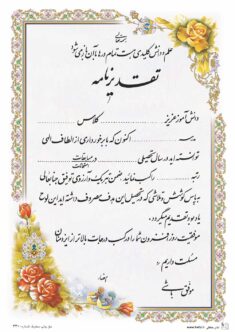 علم و دانش کلیدی است تمام درها با آن باز می شود
تقدیرنامه
دانش آموز عزیز کلاس
مدرسه اکنون که با برخورداری از الطاف الهی
توانسته اید در سال تحصیلی در مسابقات
امتحانات
رتبه را کسب نمائید ضمن تبریک و آرزوی توفیق جنابعالی
به پاس کوشش و تلاشی که در تحصیل این هدف مصروف داشته اید این لوح
یادبود تقدیم میگردد.
موفقیت روز افزون شما را در کسب درجات بالاتر از ایزد منان
مسئلت داریم.
امضاء
موفق باشی